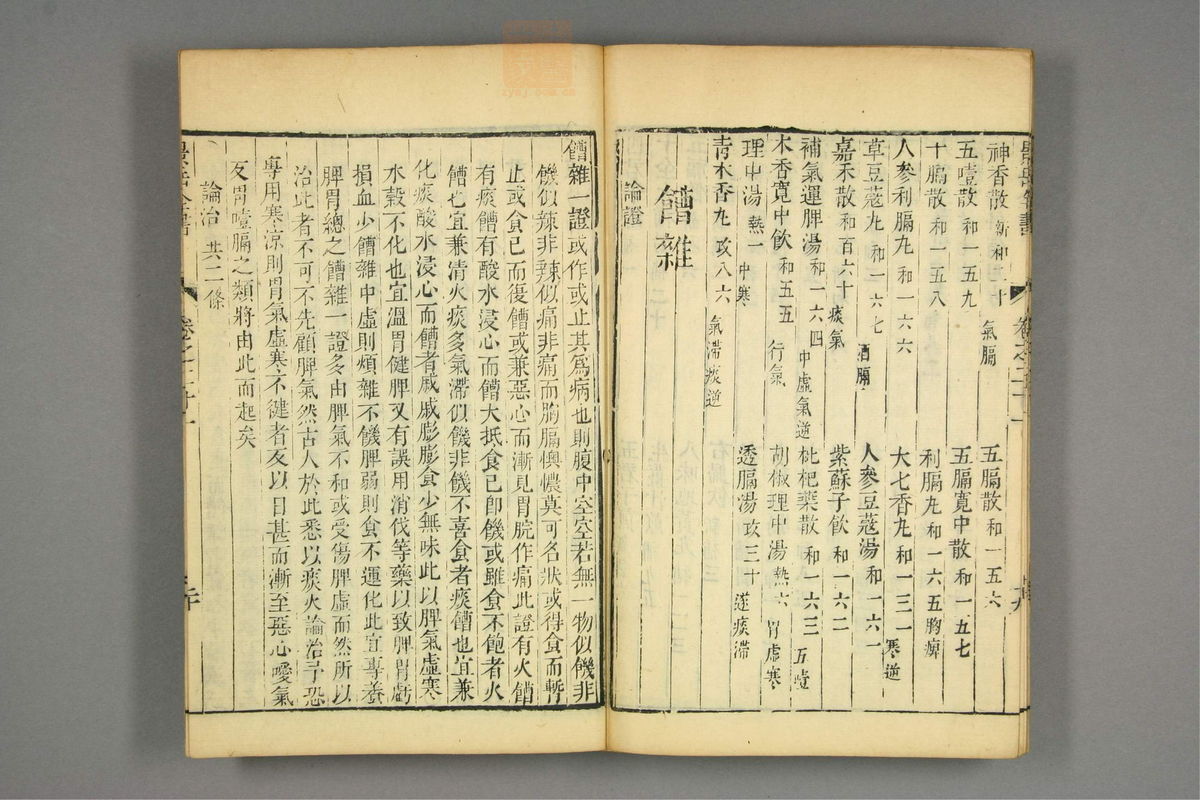 神香散 新和二十 氣膈
五膈散 和一五六
五噎散 和一五九
五膈寬中散 和一五七
十膈散 和一五八
利膈丸 和一六五 胸痺
人參利膈丸 和一六六
大七香丸 和一三一 寒逆
草豆蔻丸 和一六七 酒膈
人參豆蔻湯 和一六一
嘉禾散 和百六十 痰氣
紫蘇子飲 和一六二
補氣運脾湯 和一六四 中虛氣逆
枇杷葉散 和一六三 五噎
木香寬中飲 和五五 行氣
胡椒理中湯 熱六 胃虛寒
理中湯 熱一 中寒
透膈湯 攻三十 逆痰滯
青木香丸 攻八六 氣滯痰逆
嘈雜
論證
嘈雜一證或作或止其爲病也則腹中空空若無一物似饑非
饑似辣非辣似痛非痛而胸膈懊憹莫可名狀或得食而暫
止或食已而復嘈或兼惡心而漸見胃脘作痛此證有火嘈
有痰嘈有酸水浸心而嘈大抵食已卽饑或雖食不飽者火
嘈也宜兼清火痰多氣滯似饑非饑不喜食者痰嘈也宜兼
化痰酸水浸心而嘈者戚戚膨膨食少無味此以脾氣虛寒
水穀不化也宜溫胃健脾又有誤用消伐等藥以致脾胃虧
損血少嘈雜中虛則煩雜不饑脾弱則食不運化此宜專養
脾胃總之嘈雜一證多由脾氣不和或受傷脾虛而然所以
治此者不可不先顧脾氣然古人於此悉以痰火論治予恐
專用寒凉則胃氣虛寒不健者反以日甚而漸至惡心噯氣
反胃噎膈之類將由此而起矣
論治 共二條
景岳全書
卷之二十一